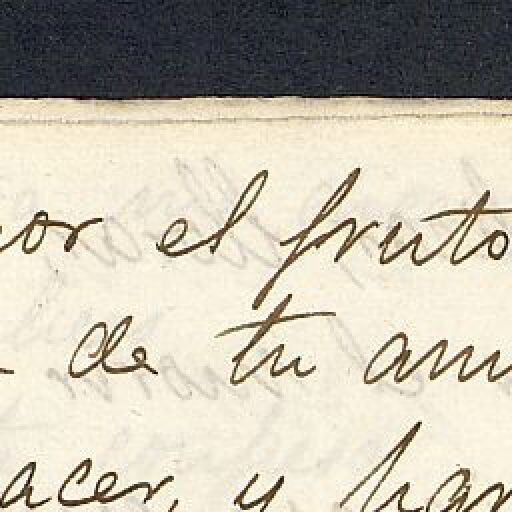 or el fruto
de tu am
acer, y har